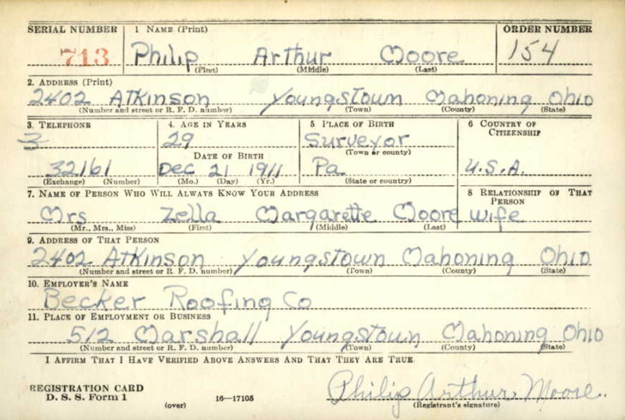 SERIAL NUMBER 1 NAME (Print) ORDER NUMBER
713 Philip Arthur Moore 154
(First) (Middle) (Last)
2. ADDRESS (Print)
2402 Atkinson Youngstown Mahoning Ohio
(Number and street or R. F. D. number) (Town) (County) (State)
3. TELEPHONE 4. AGE IN YEARS 5 PLACE OF BIRTH 6 COUNTRY OF CITIZENSHIP
3 29 Surveyor
DATE OF BIRTH (Town or county)
32161 Dec 21 1911 Pa U.S.A.
(Exchange) (Number) (Mo.) (Day) (Yr.) (State or county)
7. NAME OF PERSON WHO WILL ALWAYS KNOW YOUR ADDRESS 8 RELATIONSHIP OF THAT PERSON
Mrs Zella Margarette Moore wife
(Mr., Mrs., Miss) (First) (Middle) (Last)
9. ADDRESS OF THAT PERSON
2402 Atkinson Youngstown Mahoning Ohio
(Number and street or R. F. D. number) (Town) (County) (State)
10. EMPLOYER'S NAME
Becker Roofing Co
11. PLACE OF EMPLOYMENT OR BUSINESS
512 Marshall Youngstown Mahoning Ohio
(Number and street or R. F. D. number) (Town) (County) (State)
I AFFIRM THAT I HAVE VERIFIED ABOVE ANSWERS AND THAT THEY ARE TRUE.
REGISTRATION CARD
D. S. S. Form 1 16—17105 Philip Arthur Moore.
(over) (Registrant's signature)